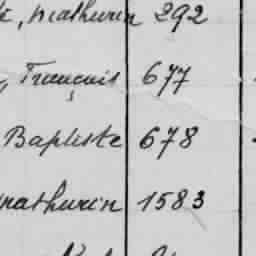 , Mathurin 292
, François 677
Baptiste 678
Mathurin 1583